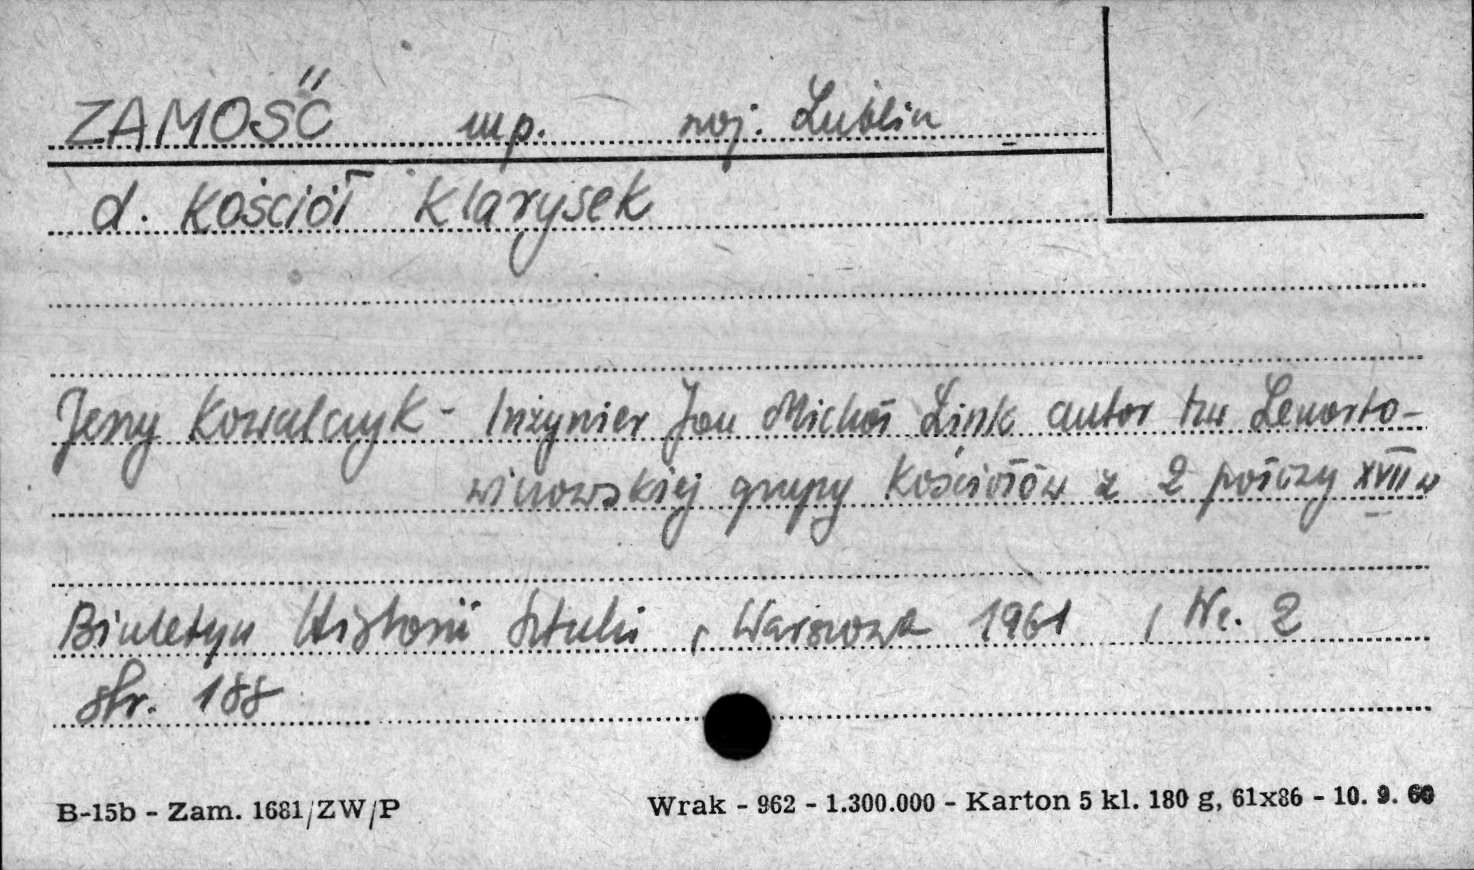 ZAMOŚĆ mp. woj. Lublin
d. Kościół Klarysek
Jerzy Kowalczyk - Inżynier Jan Michał Link autor tzw Lenarto-
wiczowskiej grupy kościołów z 2 połowy XVII w
Biuletyn Historii Sztuki, Warszawa 1961, Nr. 2
str. 188
B-15b - Zam. 1681/ZW/P
Wrak - 962 - 1.300.000 - Karton 5 kl. 180 g, 61x86 - 10. 9. 60